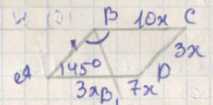 B 10x C
3x
A 145° D
3x B₁ 7x